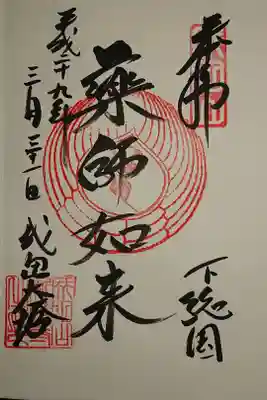 奉拝
下総国
薬師如来
平成二十九年
三月三十一日